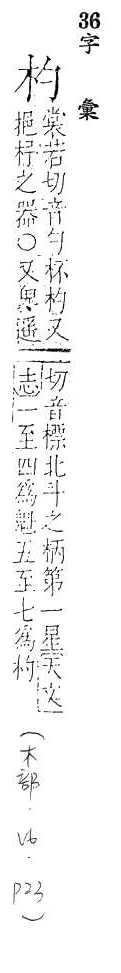 36字彙
杓
裳若切音勺杯杓又
挹抒之器〇又卑遥
切音標北斗之柄第一星天文
志一至四爲魁五至七爲杓
(木部.V6.P23)